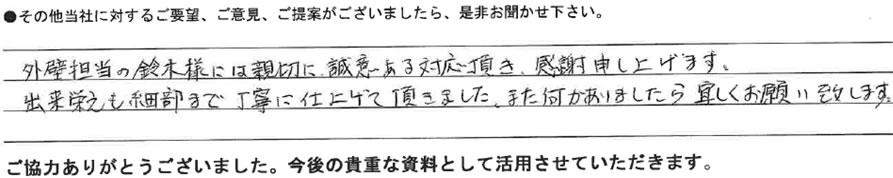 ●その他当社に対するご要望、ご意見、ご提案がございましたら、是非お聞かせ下さい。
外壁担当の鈴木様には親切に、誠意ある対応頂き、感謝申し上げます。
出来栄えも細部まで丁寧に仕上げて頂きました、また何かありましたら宜しくお願い致します。
ご協力ありがとうございました。今後の貴重な資料として活用させていただきます。